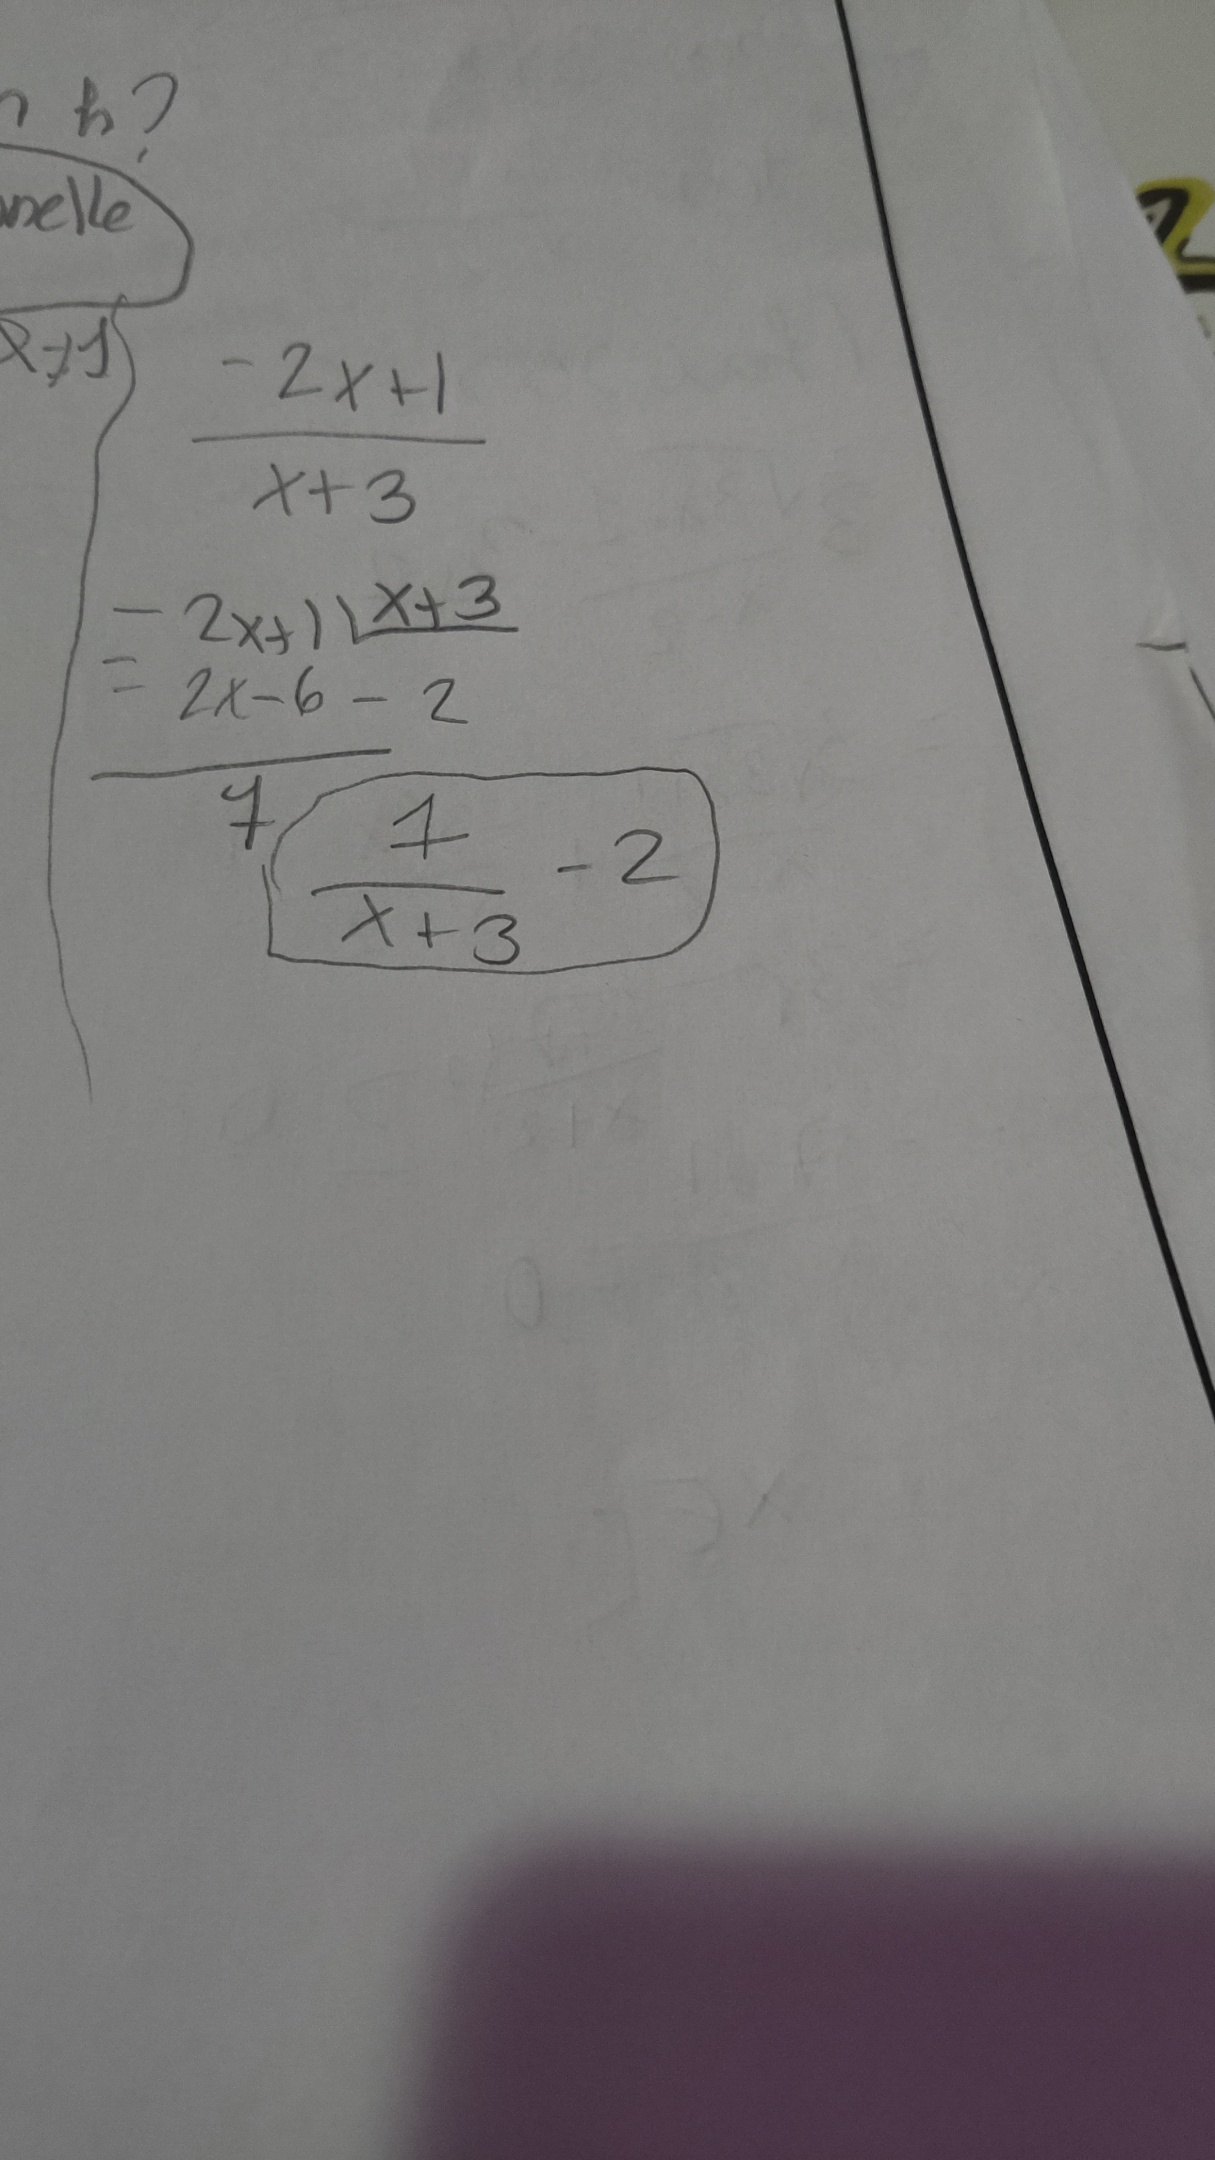 h?
nelle
x≠1
-2x+1
x+3
- 2x+1 | x+3
= 2x-6 - 2
7
7
x+3
- 2